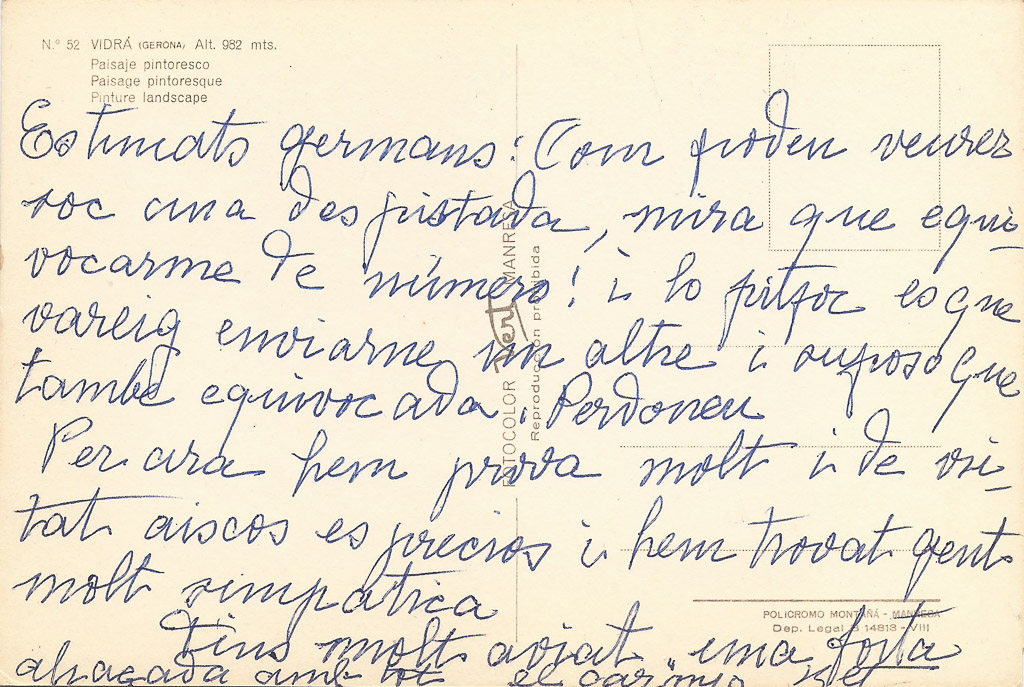 N.º 52 VIDRÁ (GERONA) Alt. 982 mts.
Paisaje pintoresco
Paisage pintoresque
Pinture landscape
Estimats germans: Com poden veurer
soc una despistada, mira que equi-
vocarme de número! i lo pitjor es que
vareig enviarne un altre i suposo que
també equivocada. Perdoneu
Per ara hem prova molt i de vri-
tat aiscos es precios i hem trovat gent
molt simpatica
Fins molt aviat una forta
abraçada amb tot el
FOTOCOLOR Vert MANRESA
Reproducción prohibida
POLICROMO MONTAÑÁ - MANRESA
Dep. Legal B 14813 - VIII